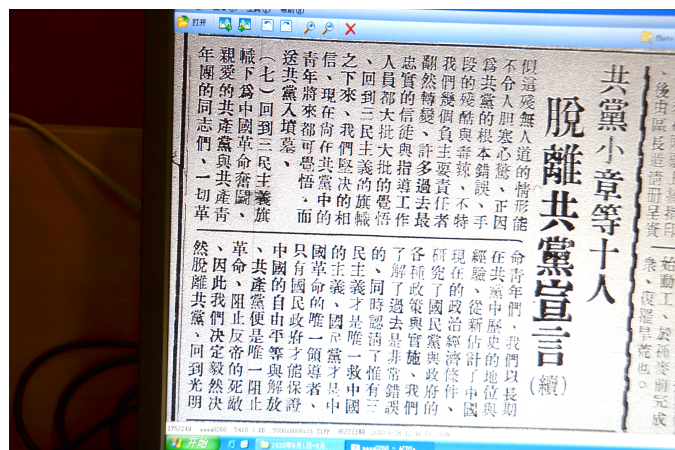 打开
、後由區長造清冊呈
始動工、於種麥前完成
共黨小章等十人
脫離共黨宣言(續)
似這殘無人道的情形能
不令人胆寒心驚、正因
爲共黨的根本錯誤、手
段的殘酷與毒辣、不特
我們幾個負主要責任者
翻然轉變、許多過去最
忠實的信徒與指導工作
人員都大批大批的覺悟
、回到三民主義的旗幟
之下來、我們堅决的相
信、現在尙在共黨中的
青年將來都可覺悟、而
送共黨入墳墓、
(七)回到三民主義旗
幟下爲中國革命奮鬪、
親愛的共產黨與共產青
年團的同志們、一切革
命青年們、我們以長期
在共黨中歷史的地位與
經驗、從新估計了中國
現在的政治經濟條件、
研究了國民黨與政府的
各種政策與實施、我們
了解了過去是非常錯誤
的、同時認淸了惟有三
民主義才是唯一救中國
的主義、國民黨才是中
國革命的唯一領導者、
只有國民政府才能保證
中國的自由平等與解放
、共產黨便是唯一阻止
革命、阻止反帝的死敵
、因此我們决定毅然决
然脫離共黨、回到光明
175/249
开始